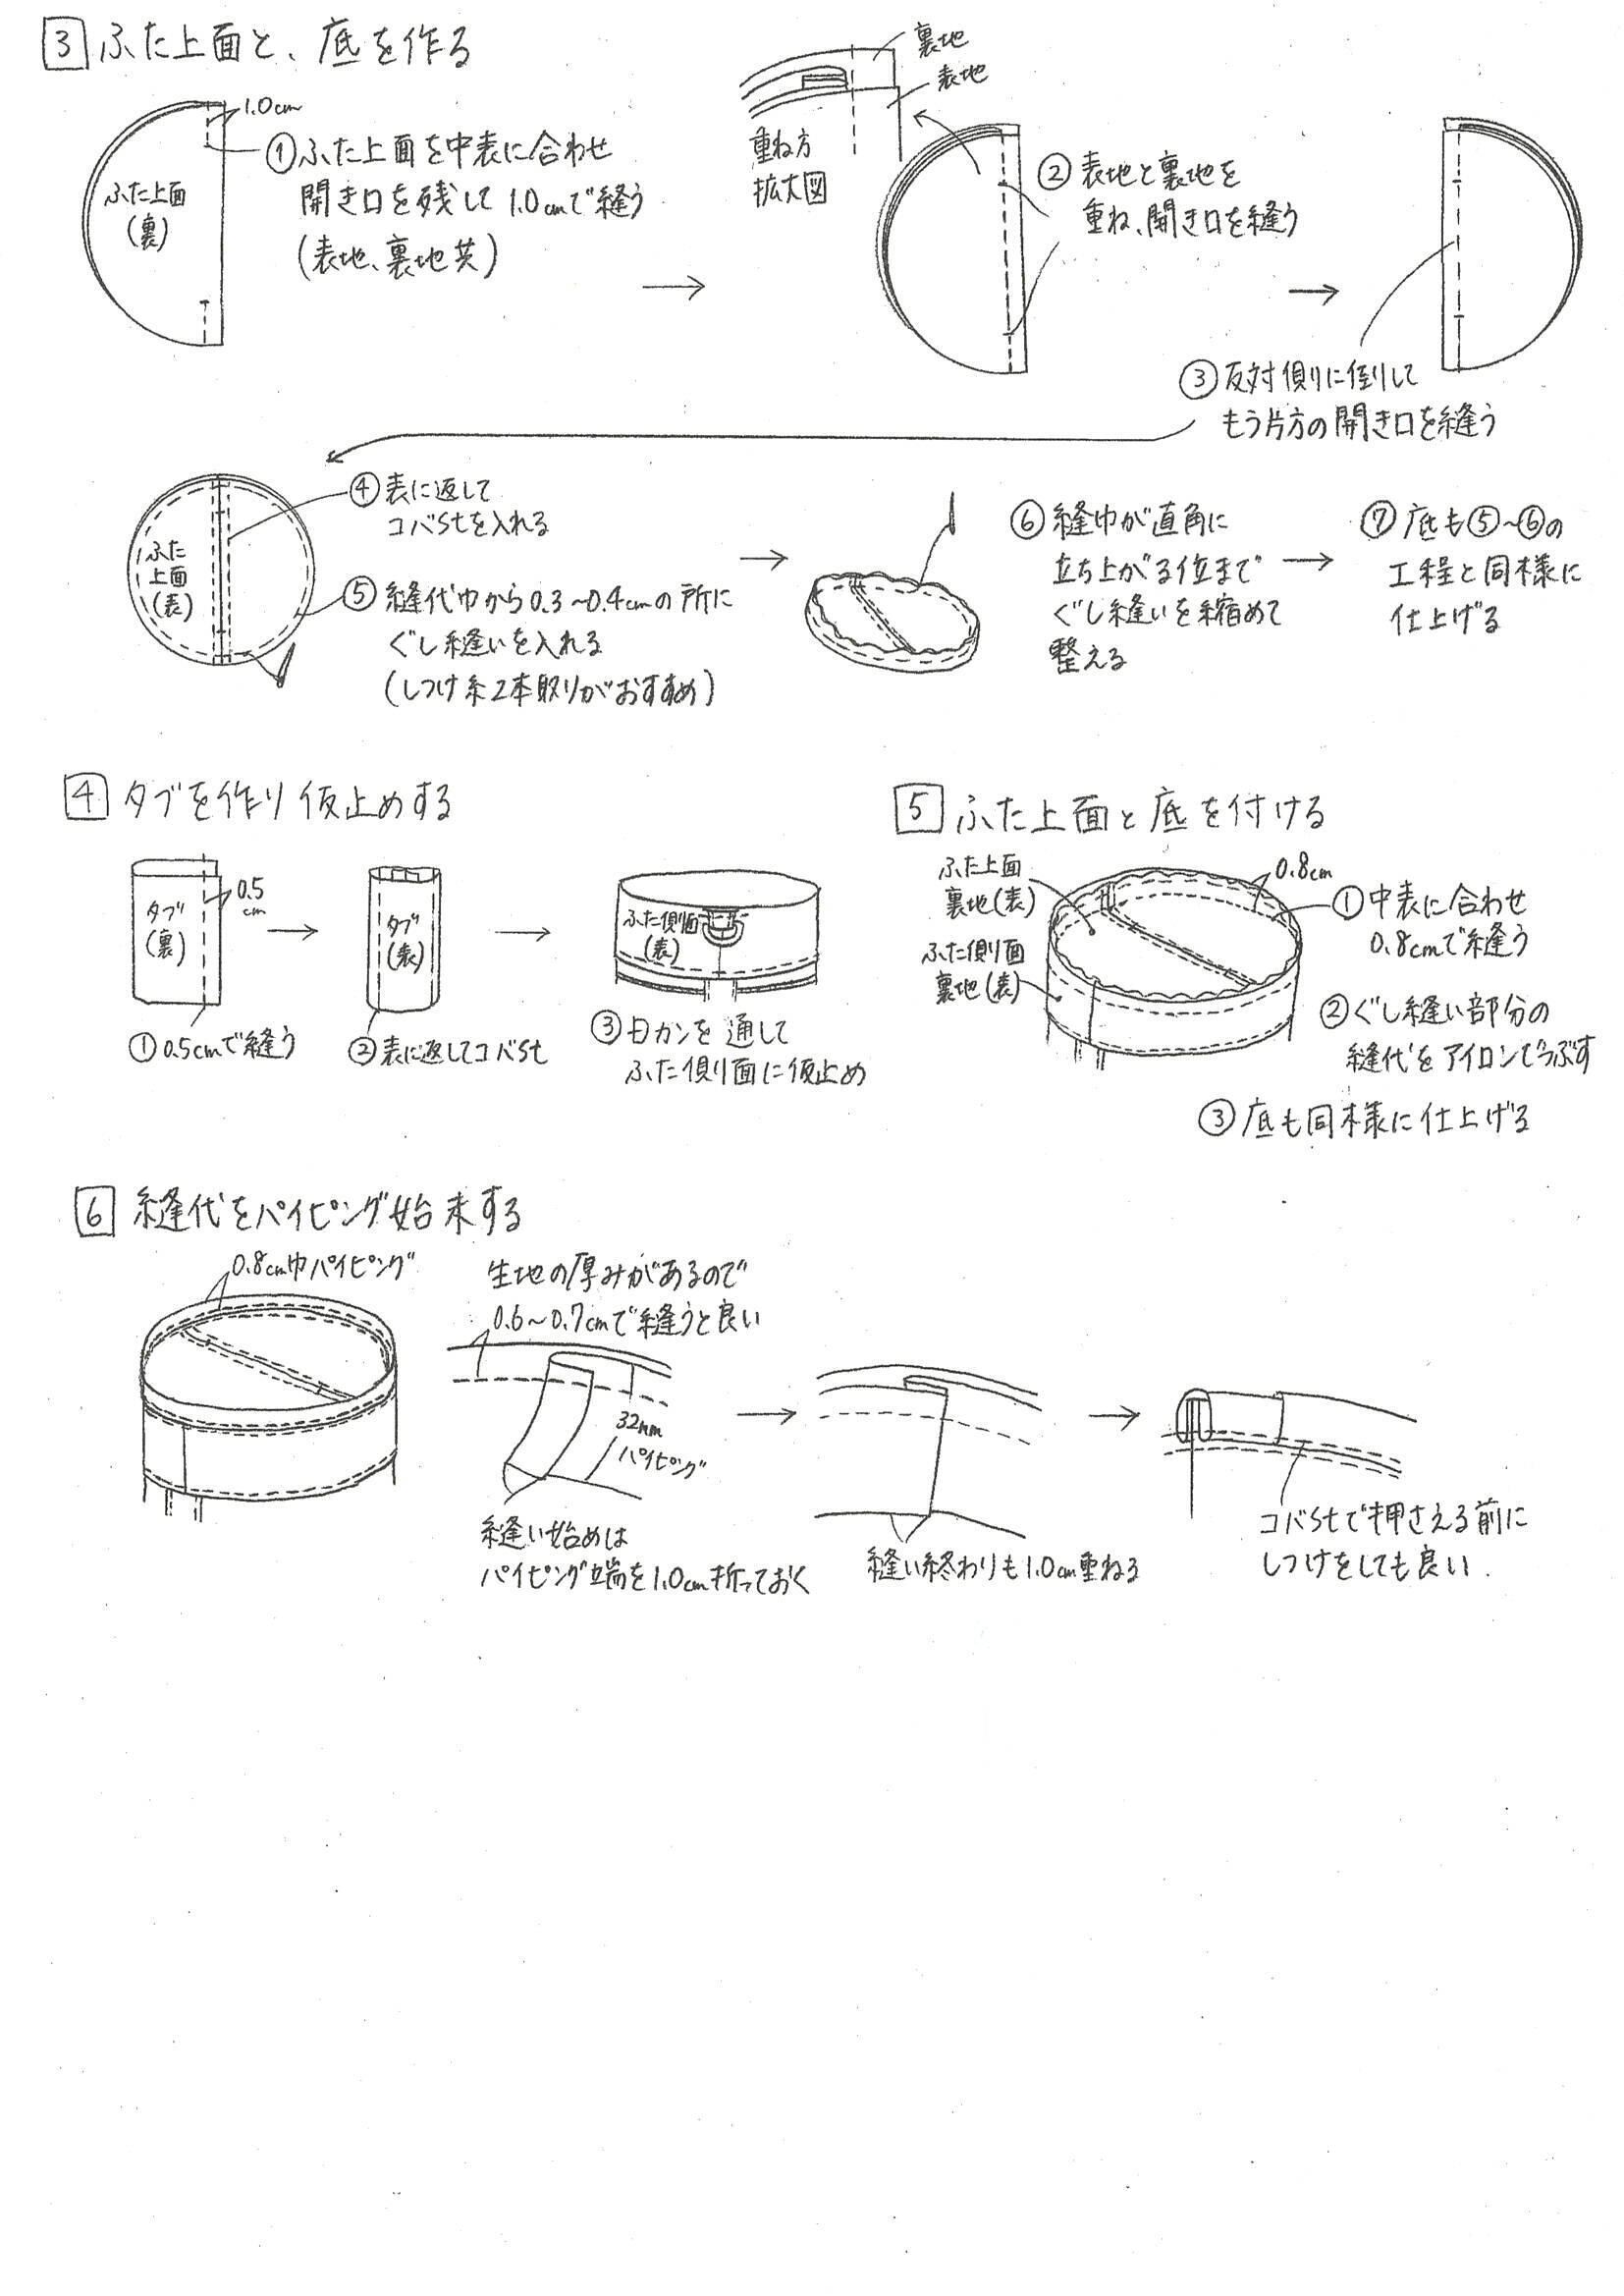 3 ふた上面と、底を作る
1.0cm
ふた上面
(裏)
①ふた上面を中表に合わせ
開き口を残して1.0cmで縫う
(表地、裏地共)
裏地
表地
重ね方
拡大図
②表地と裏地を
重ね、開き口を縫う
③反対側に倒して
もう片方の開き口を縫う
ふた
上面
(表)
④表に返して
コバStを入れる
⑤縫代巾から0.3~0.4cmの所に
ぐし縫いを入れる
(しつけ糸2本取りがおすすめ)
⑥縫巾が直角に
立ち上がる位まで
ぐし縫いを縮めて
整える
⑦底も⑤~⑥の
工程と同様に
仕上げる
4 タブを作り仮止めする
タブ
(裏)
0.5
cm
①0.5cmで縫う
タブ
(表)
②表に返してコバSt
ふた側面
(表)
③Dカンを通して
ふた側面に仮止め
5 ふた上面と底を付ける
ふた上面
裏地(表)
ふた側面
裏地(表)
0.8cm
①中表に合わせ
0.8cmで縫う
②ぐし縫い部分の
縫代をアイロンでつぶす
③底も同様に仕上げる
6 縫代をパイピング始末する
0.8cm巾パイピング
生地の厚みがあるので
0.6~0.7cmで縫うと良い
32mm
パイピング
縫い始めは
パイピング端を1.0cm折っておく
縫い終わりも1.0cm重ねる
コバStで押さえる前に
しつけをしても良い.